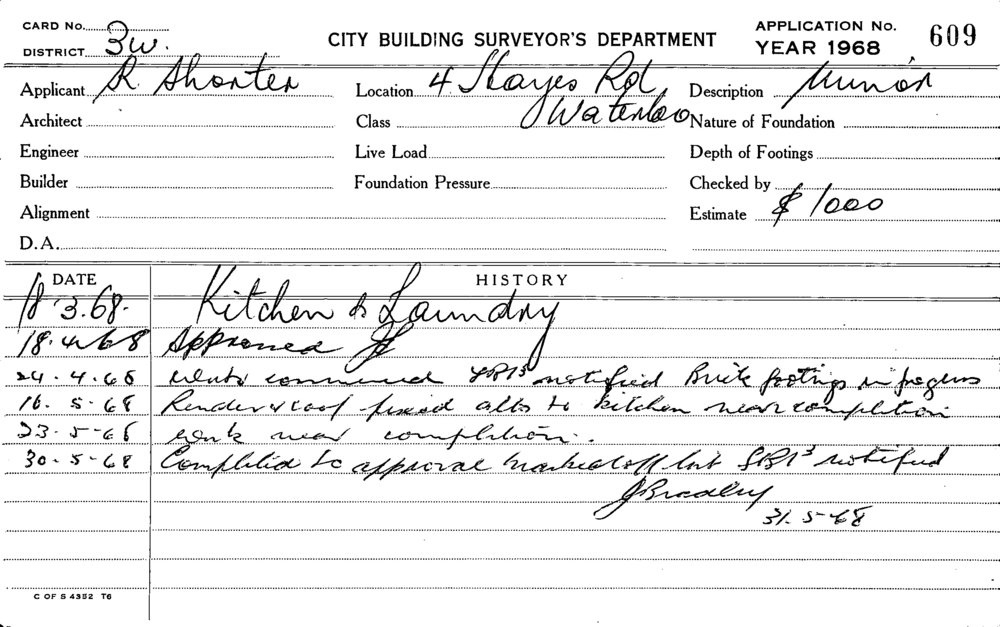 CARD No.
DISTRICT 3W.
CITY BUILDING SURVEYOR'S DEPARTMENT
APPLICATION No. 609
YEAR 1968
Applicant R Shorter
Location 4 Hayes Rd Waterloo
Description Minor
Architect
Class
Nature of Foundation
Engineer
Live Load
Depth of Footings
Builder
Foundation Pressure
Checked by
Alignment
Estimate $ 1000
D.A.
DATE HISTORY
18 3.68. Kitchen & Laundry
18.4.68 Approved
24.4.68 work commenced notified Brick footings in progress
16.5-68 Render & roof fixed alts to kitchen near completion
23-5-68 work near completion.
30-5-68 Completed to approval marked off list notified
J Bradley
31.5-68
C OF S 4352 T6